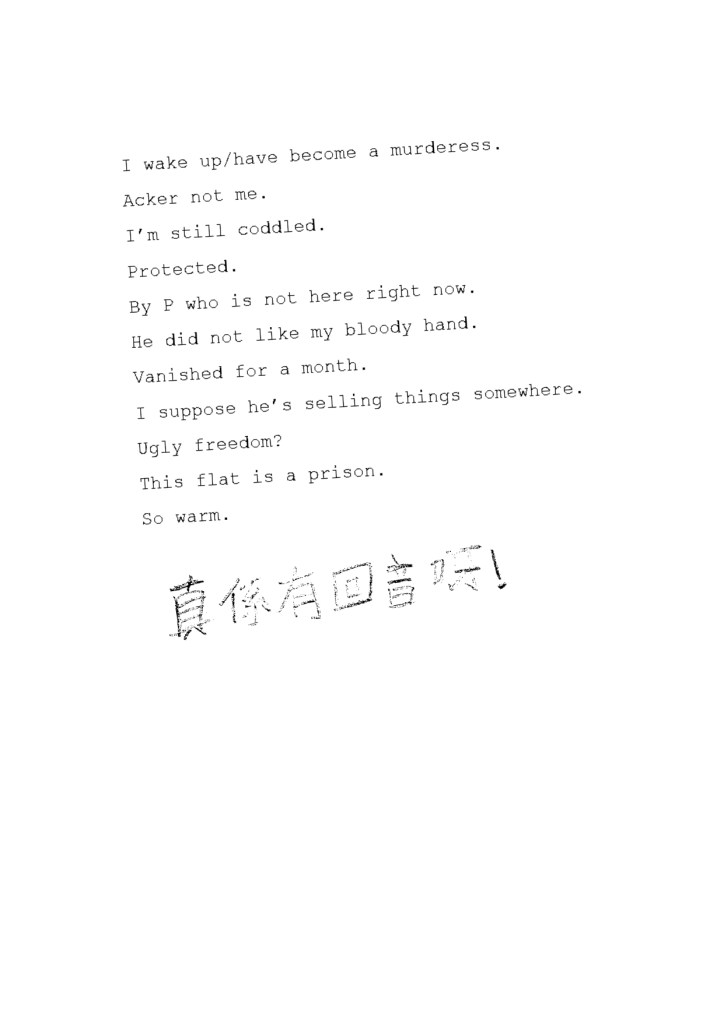 I wake up/have become a murderess.
Acker not me.
I'm still coddled.
Protected.
By P who is not here right now.
He did not like my bloody hand.
Vanished for a month.
I suppose he's selling things somewhere.
Ugly freedom?
This flat is a prison.
So warm.
真係有回音㗎!